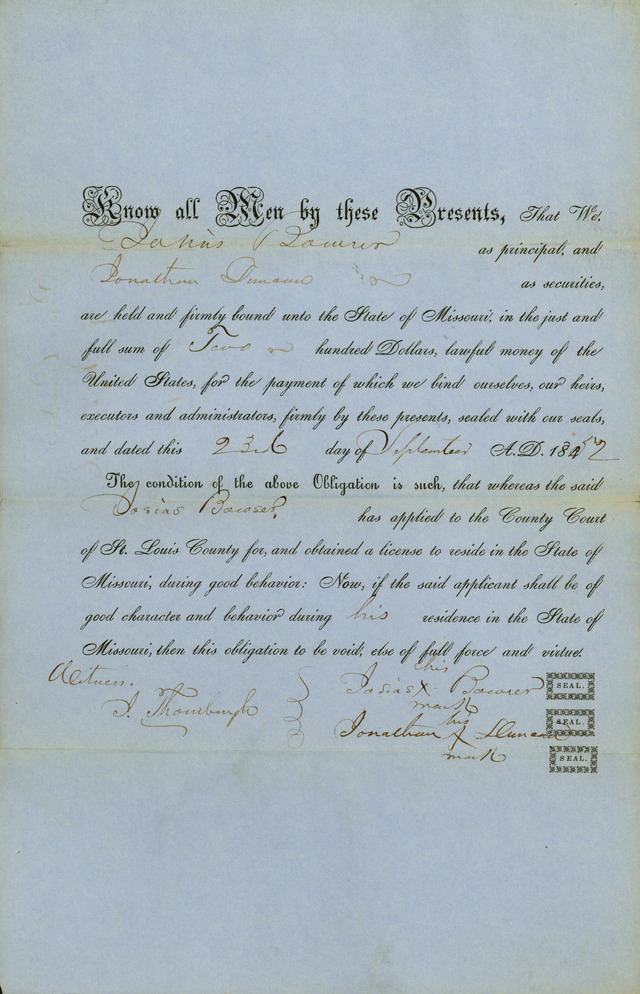 Know all Men by these Presents, That We,
Josias Bowser as principal, and
Jonathan Duncan as securities,
are held and firmly bound unto the State of Missouri, in the just and
full sum of Two hundred Dollars, lawful money of the
United States, for the payment of which we bind ourselves, our heirs,
executors and administrators, firmly by these presents, sealed with our seals,
and dated this 23d day of September A.D. 18
The condition of the above Obligation is such, that whereas the said
Josias Bowser, has applied to the County Court
of St. Louis County for, and obtained a license to reside in the State of
Missouri, during good behavior: Now, if the said applicant shall be of
good character and behavior during his residence in the State of
Missouri, then this obligation to be void; else of full force and virtue.
Witness.
J. Thornburgh
his
Josias X Bowser SEAL.
mark
his
Jonathan X Duncan SEAL.
mark
SEAL.